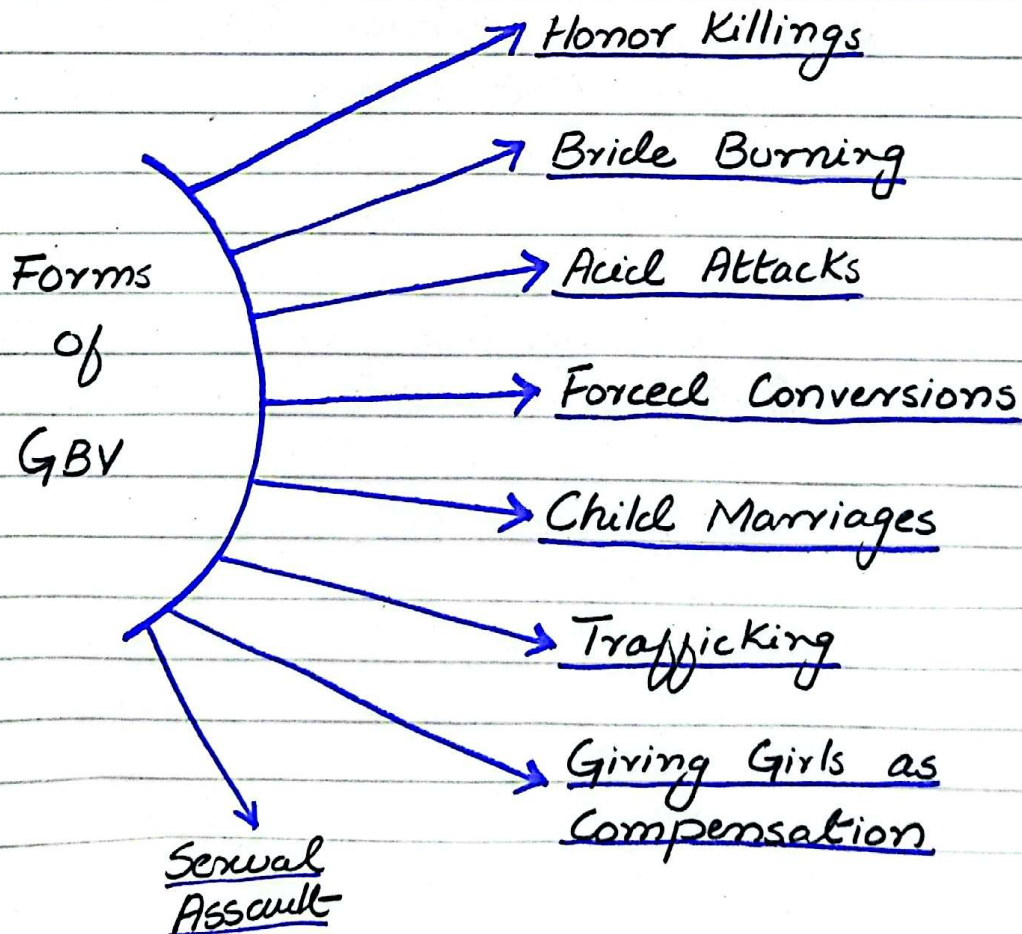 Honor Killings
Bride Burning
Acid Attacks
Forms
of
GBV
Forced Conversions
Child Marriages
Trafficking
Giving Girls as
Compensation
Sexual
Assault